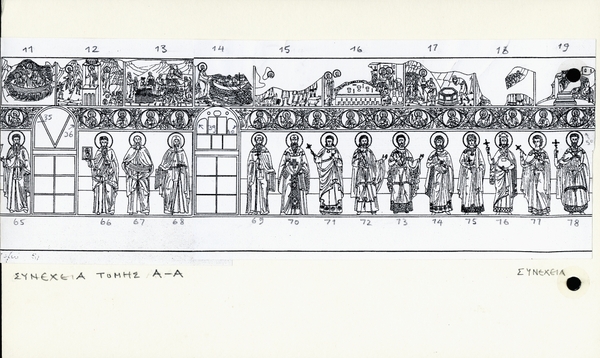 11 12 13 14 15 16 17 18 19
35
36
65 66 67 68 69 70 71 72 73 74 75 76 77 78
ΣΥΝΕΧΕΙΑ ΤΟΜΗΣ Α-Α ΣΥΝΕΧΕΙΑ